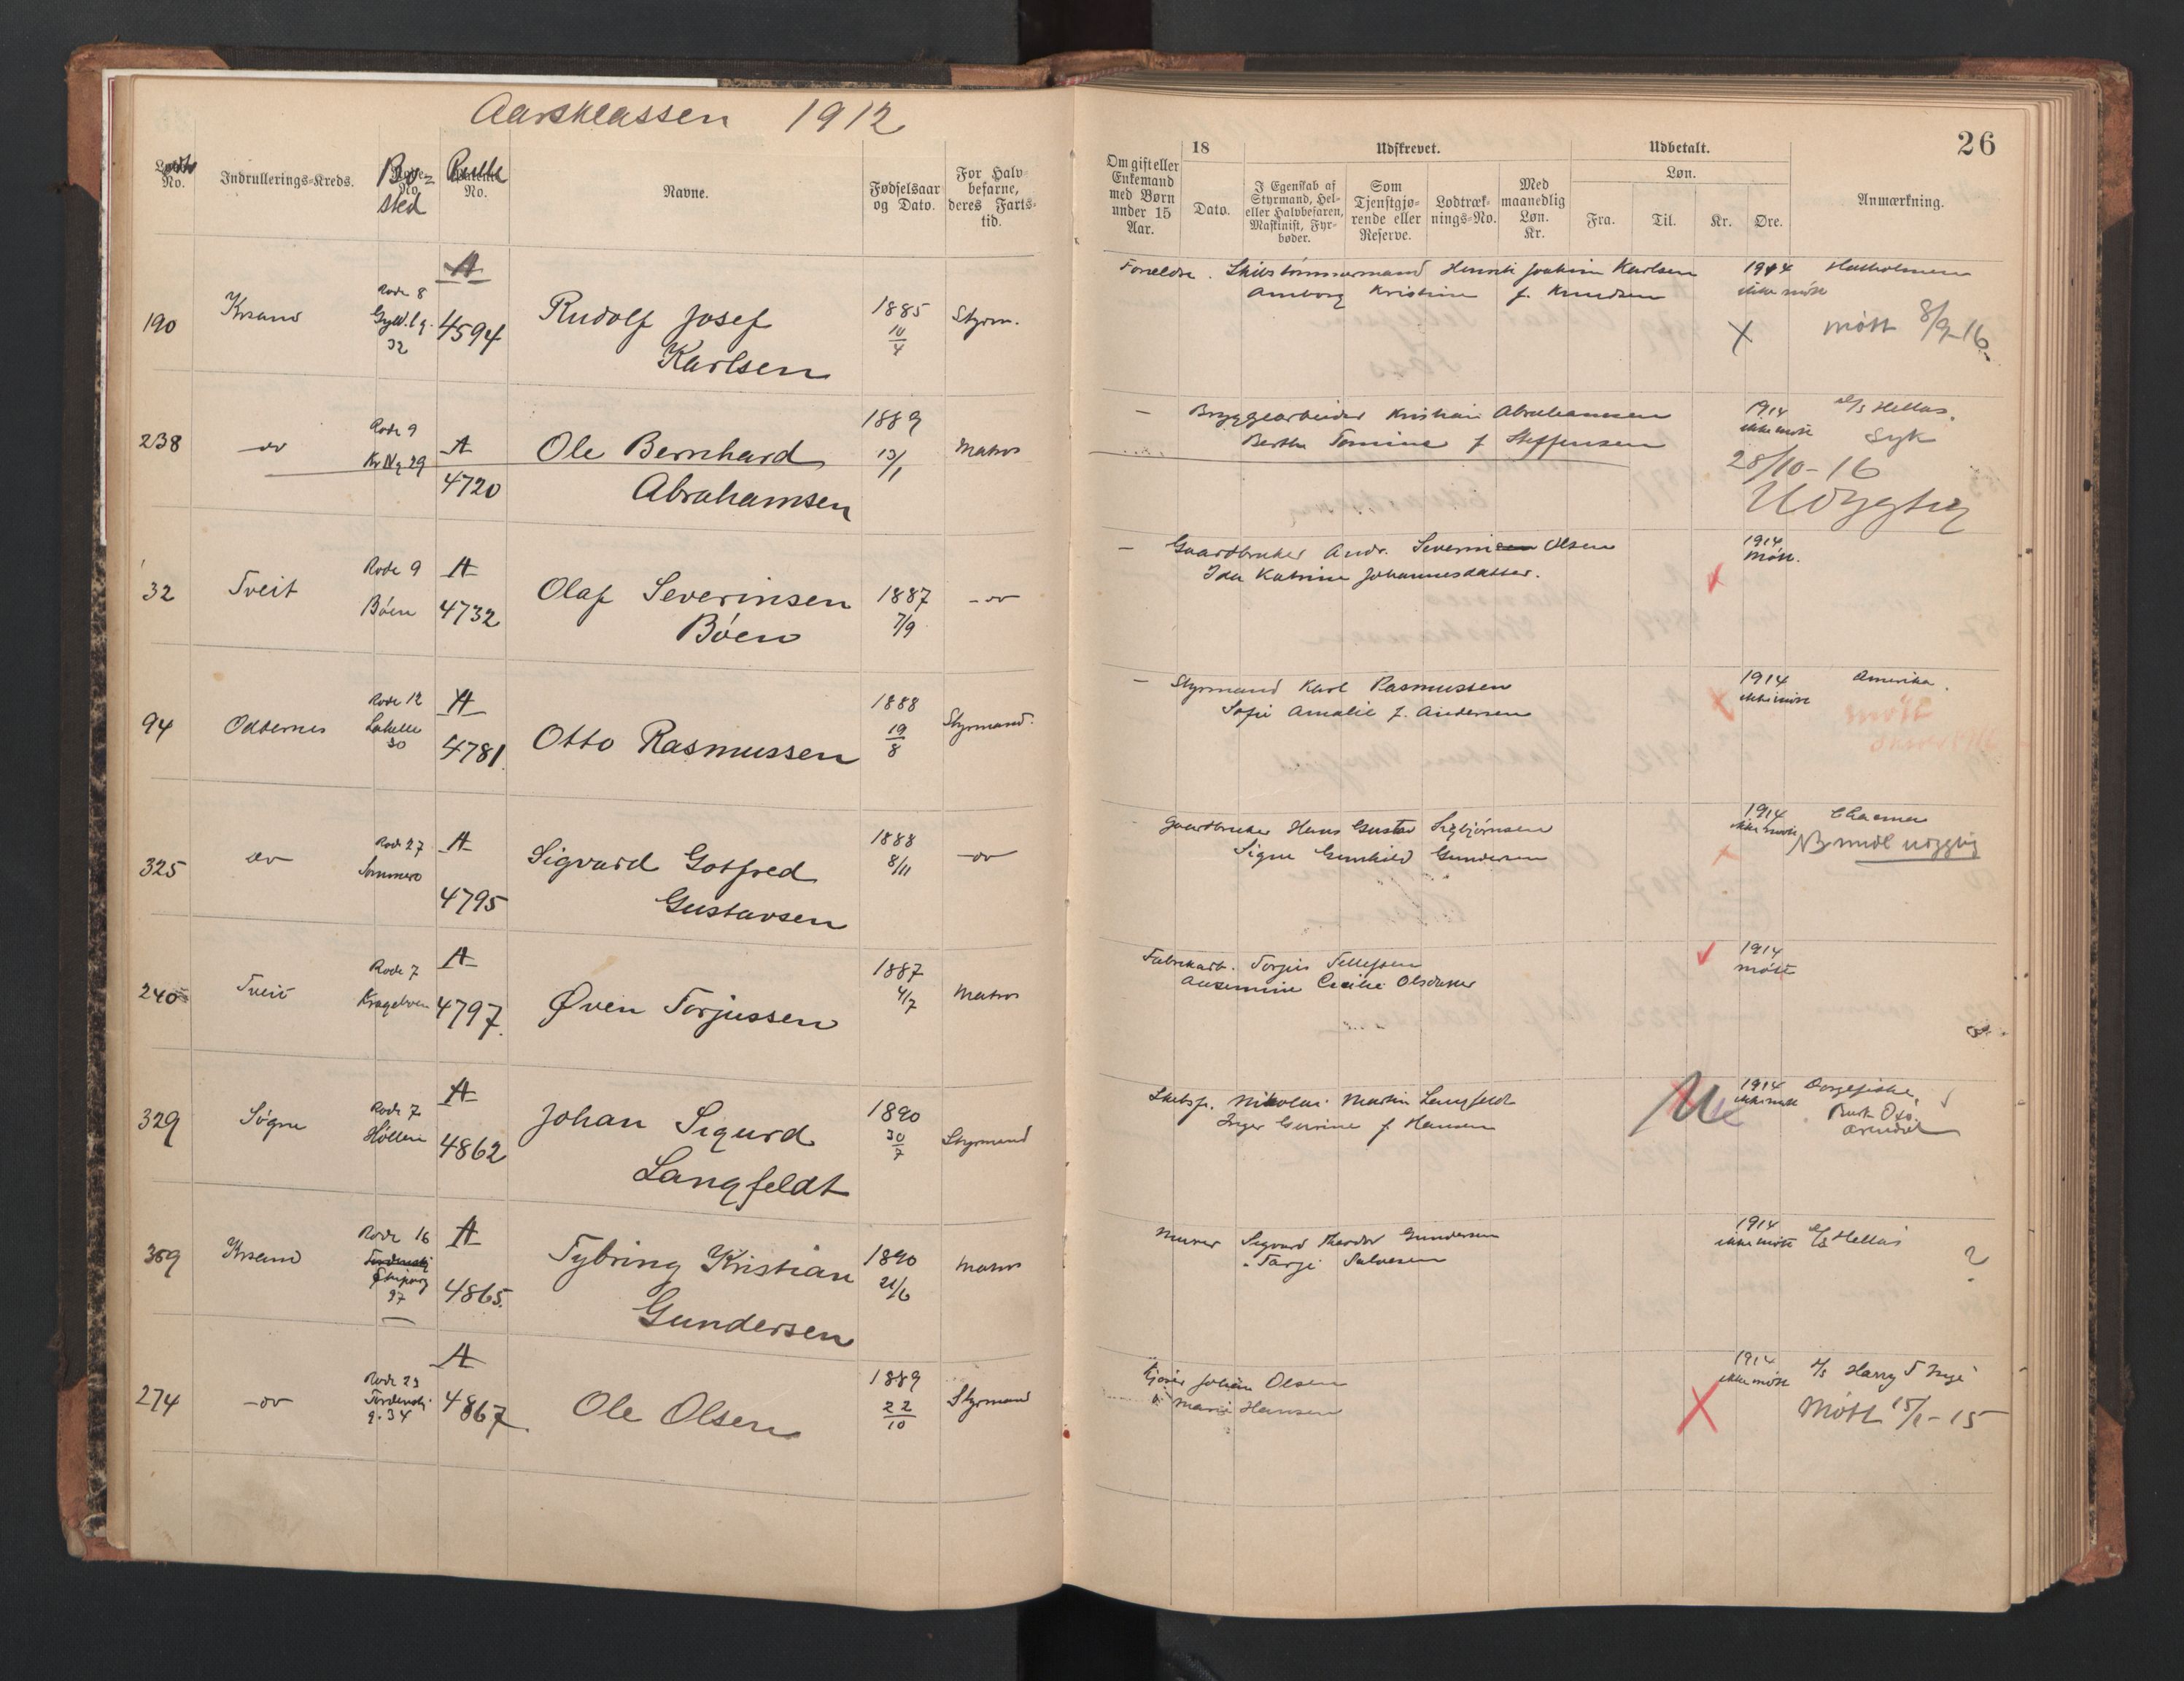 Aarsklassen 1912
26
Lodtr No.
Indrullerings-Kreds.
Bo-
sted
Rulle
No.
Navne.
Fødselsaar
og Dato.
For Halv-
befarne,
deres Farts-
tid.
Om gift eller
Enkemand
med Børn
under 15
Aar.
18
Dato.
Udskrevet.
I Egenskab af
Styrmand, Hel-
eller Halvbefaren,
Maskinist, Fyr-
bøder.
Som
Tjenstgjø-
rende eller
Reserve.
Lodtræk-
nings-No.
Med
maanedlig
Løn.
Kr.
Udbetalt.
Løn.
Fra.
Til.
Kr.
Øre.
Anmærkning.
190 Krsand Rode 8
32
A
4594
Rudolf Josef
Karlsen
1885
10/4
Styrm.
Foreldre. Skibstømmermand Henrik Joakim Karlsen
Kristine f. Knudsen
1914
ikke møtt
X
møtt 8/9-16
238 do Rode 9
29
A
4720
Ole Bernhard
Abrahamsen
1889
13/1
Matros
— Bryggearbeider Kristian Abrahamsen
Berthe Tomine f Steffensen
1914
ikke møtt
D/S Hellas.
Syk
28/10-16
Udygtig
32 Tveit Rode 9
Bøen
A
4732
Olaf Severinsen
Bøen
1887
7/9
do
— Gaardbruker Andr. Severin Olsen
Ida Katrine Johannesdatter.
1914
Møtt.
94 Oddernes Rode 12
30
A
4781
Otto Rasmussen
1888
19/8
Styrmand.
— Styrmand Karl Rasmussen
Sofie Amalie f. Andersen
1914
ikke møtt
Amerika.
325 do Rode 27
A
4795
Sigvard Gotfred
Gustavsen
1888
8/11
do
Gaardbruker Hans Gustav Sigbjørnsen
Signe Gunhild Gundersen
1914
ikke møtt
NB midl udygtig
240 Tveit Rode 7
A
4797
Øven Torjussen
1887
4/7
Matros
Fabrikarb. Torjus Tellefsen
Cecilie Olsdatter
1914
møtt
329 Søgne Rode 7
Høllen
A
4862
Johan Sigurd
Langfeldt
1890
30/7
Styrmand
Skibsf. Nikolai Martin Langfeldt
Inger f Hansen
1914
ikke møtt
309 Krsand Rode 16
97
A
4865
Tybring Kristian
Gundersen
1890
21/6
Matros
Murer Sigvard Theodor Gundersen
Tarje Salvesen
1914
ikke møtt
D/S Hellas
?
274 do Rode 23
g. 34
A
4867
Ole Olsen
1889
22/10
Styrmand
Johan Olsen
Marie Hansen
1914
ikke møtt
X
Møtt 15/1-15